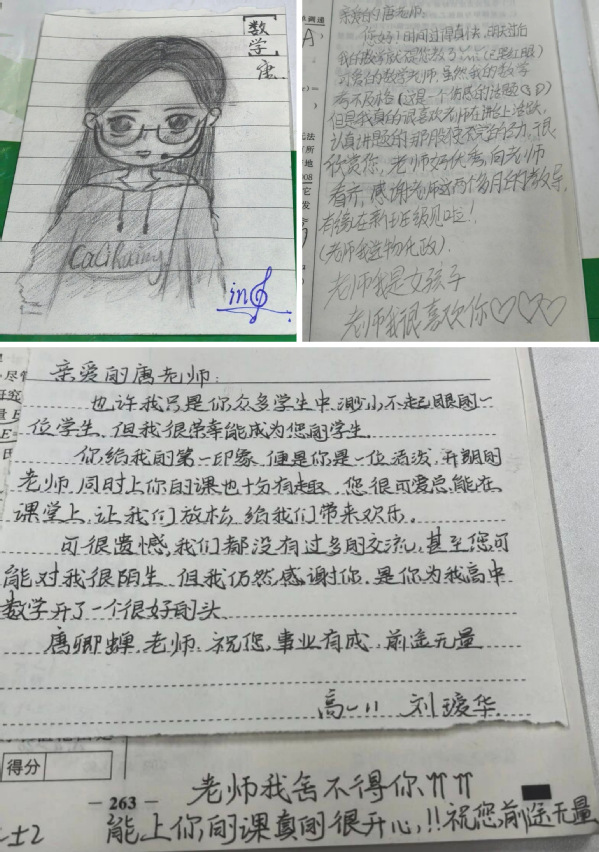 [数学]
唐
Calihuiny
ing
亲爱的唐老师
您好！时间过得真快，两天过后
可爱的数学老师，虽然我的数学
考不及格(这是一个伤感的话题
但是我真的很喜欢老师在讲台上
认真讲题的那股使不完的劲,很
欣赏你，老师好优秀，向老师
看齐，感谢老师这两个多月的教导,
有缘在新班级见啦！
(老师我选物化政).
老师我是女孩子
老师我很喜欢你♡♡♡
亲爱的唐老师：
也许我只是你众多学生中，渺小不起眼的一
位学生，但我很荣幸能成为您的学生。
你给我的第一印象，便是你是一位活泼，开朗的
老师，同时上你的课也十分有趣，您很可爱总能在
课堂上，让我们放松，给我们带来欢乐。
可很遗憾，我们都没有过多的交流，甚至您可
能对我很陌生，但我仍然感谢你，是你为我高中
数学开了一个很好的头
唐卿蝉，老师，祝您，事业有成，前途无量
高一11 刘瑷华.
得分
— 263 —
老师我舍不得你
±2
能上你的课真的很开心,!!祝您,前途无量